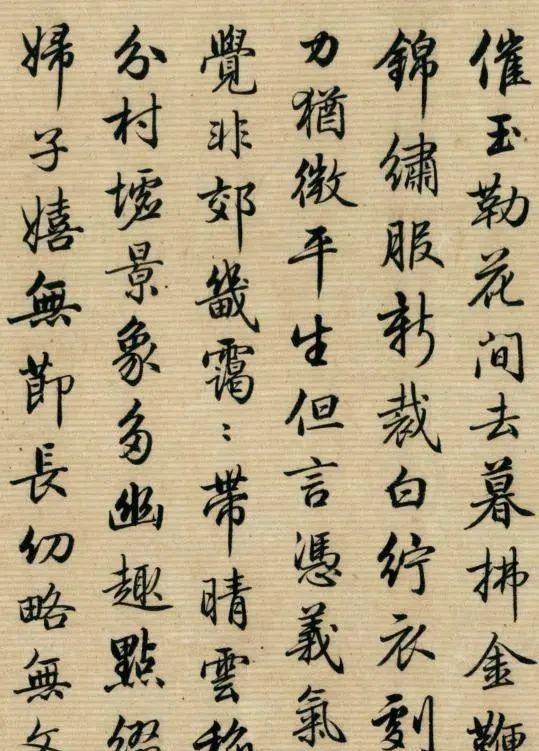 催玉勒花间去暮拂金鞭
錦繡服新裁白紵衣劇
力猶微平生但言憑義氣
覺非郊畿靄:帶晴雲稀
分村墟景象多幽趣點綴
婦子嬉無節長幼略無文